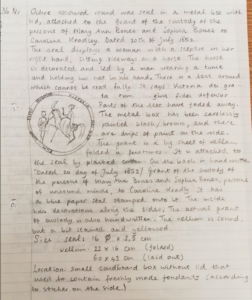 No Nr Ochre coloured round wax seal in a metal box with
lid, attached to the grant of the custody of the
persons of Mary Ann Bones and Sophia Bones to
Caroline Headley. Dated 20th of July 1852.
The seal displays a woman with a sceptre in her
right hand, sitting sideways on a horse. The horse
is decorated and led by a man wearing a tunic
and holding his hat in his hand. There is a text around
which cannot be read fully. It says Victoria dei gra-
tia - Fidei defensor.
Parts of the text have faded away.
The metal box has been carelessly
painted black/brown, and there
are drips of paint on the side.
The grant is a big sheet of vellum
folded a fourteen. It is attached to
the seal by plaited cotton. On the back in handwriting
"Dated 20 day of July 1852/ Grant of the custody of
the persons of Mary Ann Bones and Sophia Bones, persons
of unsound minds, to Caroline Headly. It has
a blue paper seal stamped onto it. The inside
has decorations along the sides. The actual grant
of custody is also handwritten. The vellum is sound
but a bit stained and yellowed.
Size: seal: 16 Ø x 2,5 cm
vellum 22 x 16 cm (folded)
60 x 43 cm (laid out)
Location: Small cardboard box without lid that
used to contain freshly made fondants (according
to sticker on the side.)